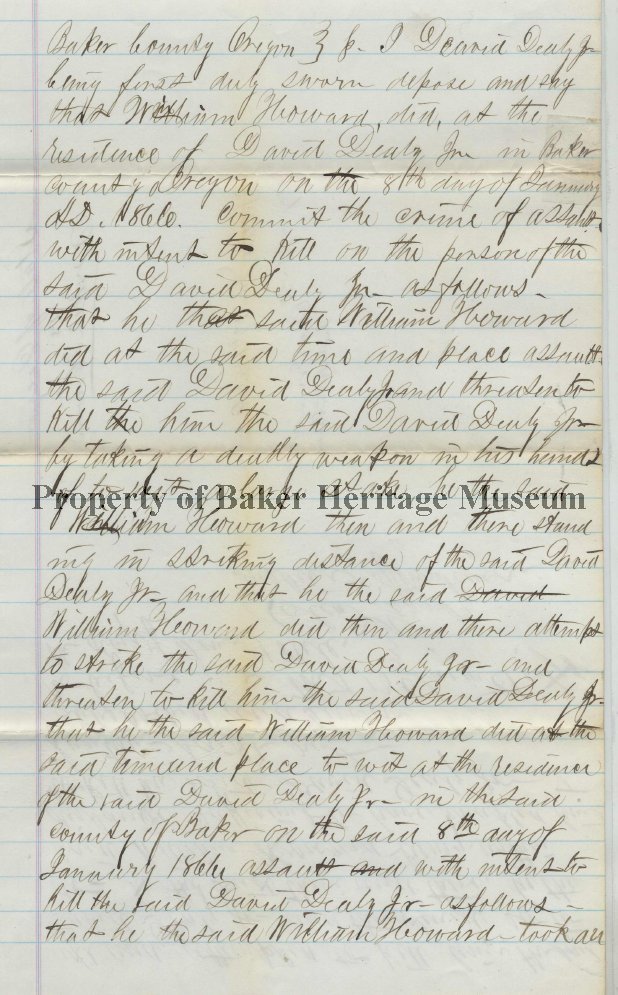 Baker County Oregon } ss. I David Dealy Jr-
being first duly sworn depose and say
that William Howard, did, at the
residence of David Dealy Jr in Baker
county Oregon on the 8th day of January
AD. 1866. commit the crime of assault.
with intent to kill on the person of the
said David Dealy Jr- as follows-
that he that said William Howard
did at the said time and place assault-
the said David Dealy Jr and threaten to
kill the him the said David Dealy Jr-
by taking a deadly weapon in his hands
to wit a large he the said
Property of Baker Heritage Museum
William Howard then and there stand
ing in striking distance of the said David
Dealy Jr- and that he the said David
William Howard did then and there attempt
to strike the said David Dealy Jr- and
threaten to kill him the said David Dealy Jr-
that he the said William Howard did at the
said time and place to wit at the residence
of the said David Dealy Jr- in the said
county of Baker on the said 8th day of
January 1866 assault and with intent to
kill the said David Dealy Jr- as follows-
that he the said William Howard- took an